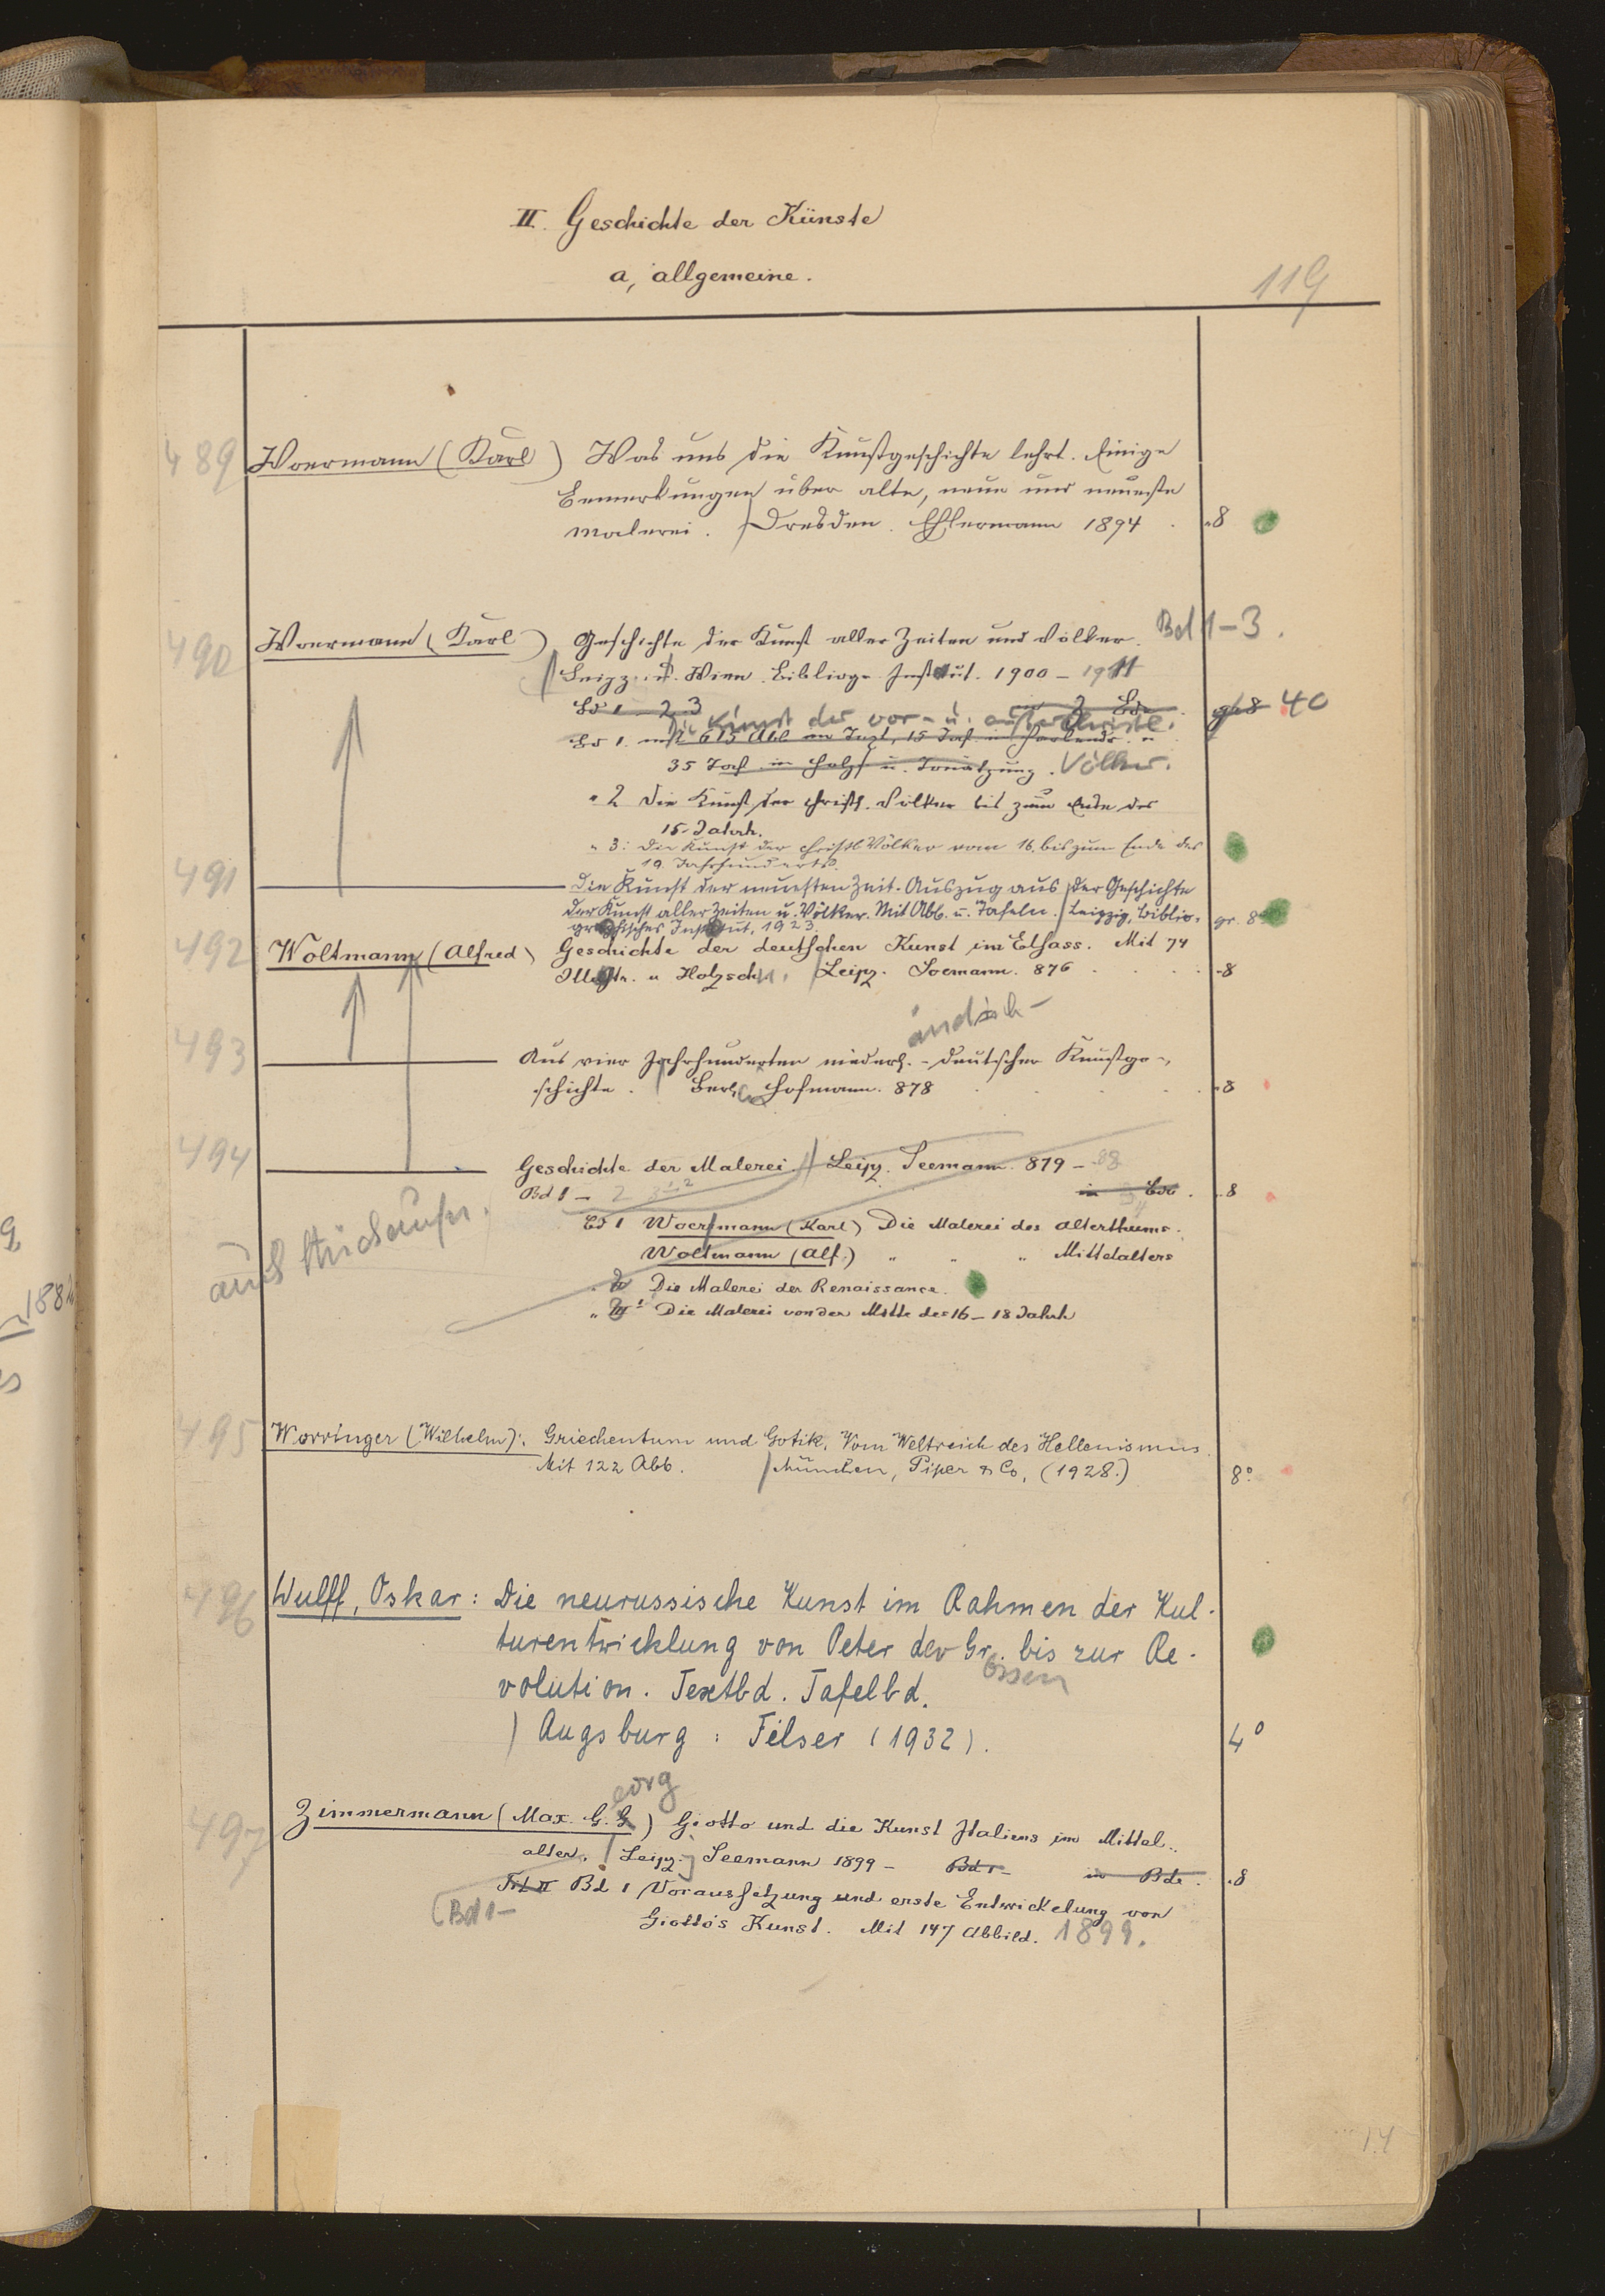 II. Geschichte der Künste
a, allgemeine.
119
489 Woermann (Karl) Was uns die Kunstgeschichte lehrt. Einige
Bemerkungen über alte, neue und neueste
Malerei. Dresden. Ehlermann 1894 . 8
490 Woermann (Karl) Geschichte der Kunst aller Zeiten und Völker. Bd 1-3.
Leipz. u. Wien. Bibliogr. Institut. 1900 - 1911
Bd 1 - 2. 3 Bde. gr. 8 40
Die Kunst der vor- u. außerchristl.
Bd 1. mit 615 Abb im Text, 15 Taf. in Farbendr. u
35 Taf. in Holzs u. Tonätzung. Völker.
" 2 Die Kunst der christl. Völker bis zum Ende des
15. Jahrh.
" 3: Die Kunst der christl Völker vom 16. bis zum Ende des
19. Jahrhunderts.
491 Die Kunst der neuesten Zeit. Auszug aus der Geschichte
der Kunst aller Zeiten u. Völker. Mit Abb. u. Tafeln. Leipzig, Biblio-
graphisches Institut, 1923. gr. 8°
492 Woltmann (Alfred) Geschichte der deutschen Kunst im Elsass. Mit 74
Illustr. u Holzschn. Leipz. Seemann. 876 . . . . 8
ändisch-
493 Aus vier Jahrhunderten niederl.-deutscher Kunstge-
schichte. Berl. Hofmann. 878 . . . . 8
494 Geschichte der Malerei. Leipz. Seemann. 879 - 88
Bd 1 - 2 3 1-2 in Bde . 8
auf
Bd 1 Woermann (Karl) Die Malerei des Alterthums.
Woltmann (Alf.) " " " Mittelalters
Die Malerei der Renaissance.
" III Die Malerei von der Mitte des 16 - 18 Jahrh
495 Worringer (Wilhelm): Griechentum und Gotik. Vom Weltreich des Hellenismus.
Mit 122 Abb. München, Piper & Co, (1928.) 8°
496 Wulff, Oskar: Die neurussische Kunst im Rahmen der Kul-
turentwicklung von Peter der Gr. bis zur Re-
ossen
volution. Textbd. Tafelbd.
Augsburg: Filser (1932). 4°
eorg
497 Zimmermann (Max. G. G) Giotto und die Kunst Italiens im Mittel-
alter. Leipz. Seemann 1899 - Bd 1- in Bde. 8
Bd 1 Voraussetzung und erste Entwickelung von
(Bd 1-
Giotto's Kunst. Mit 147 Abbild. 1899.